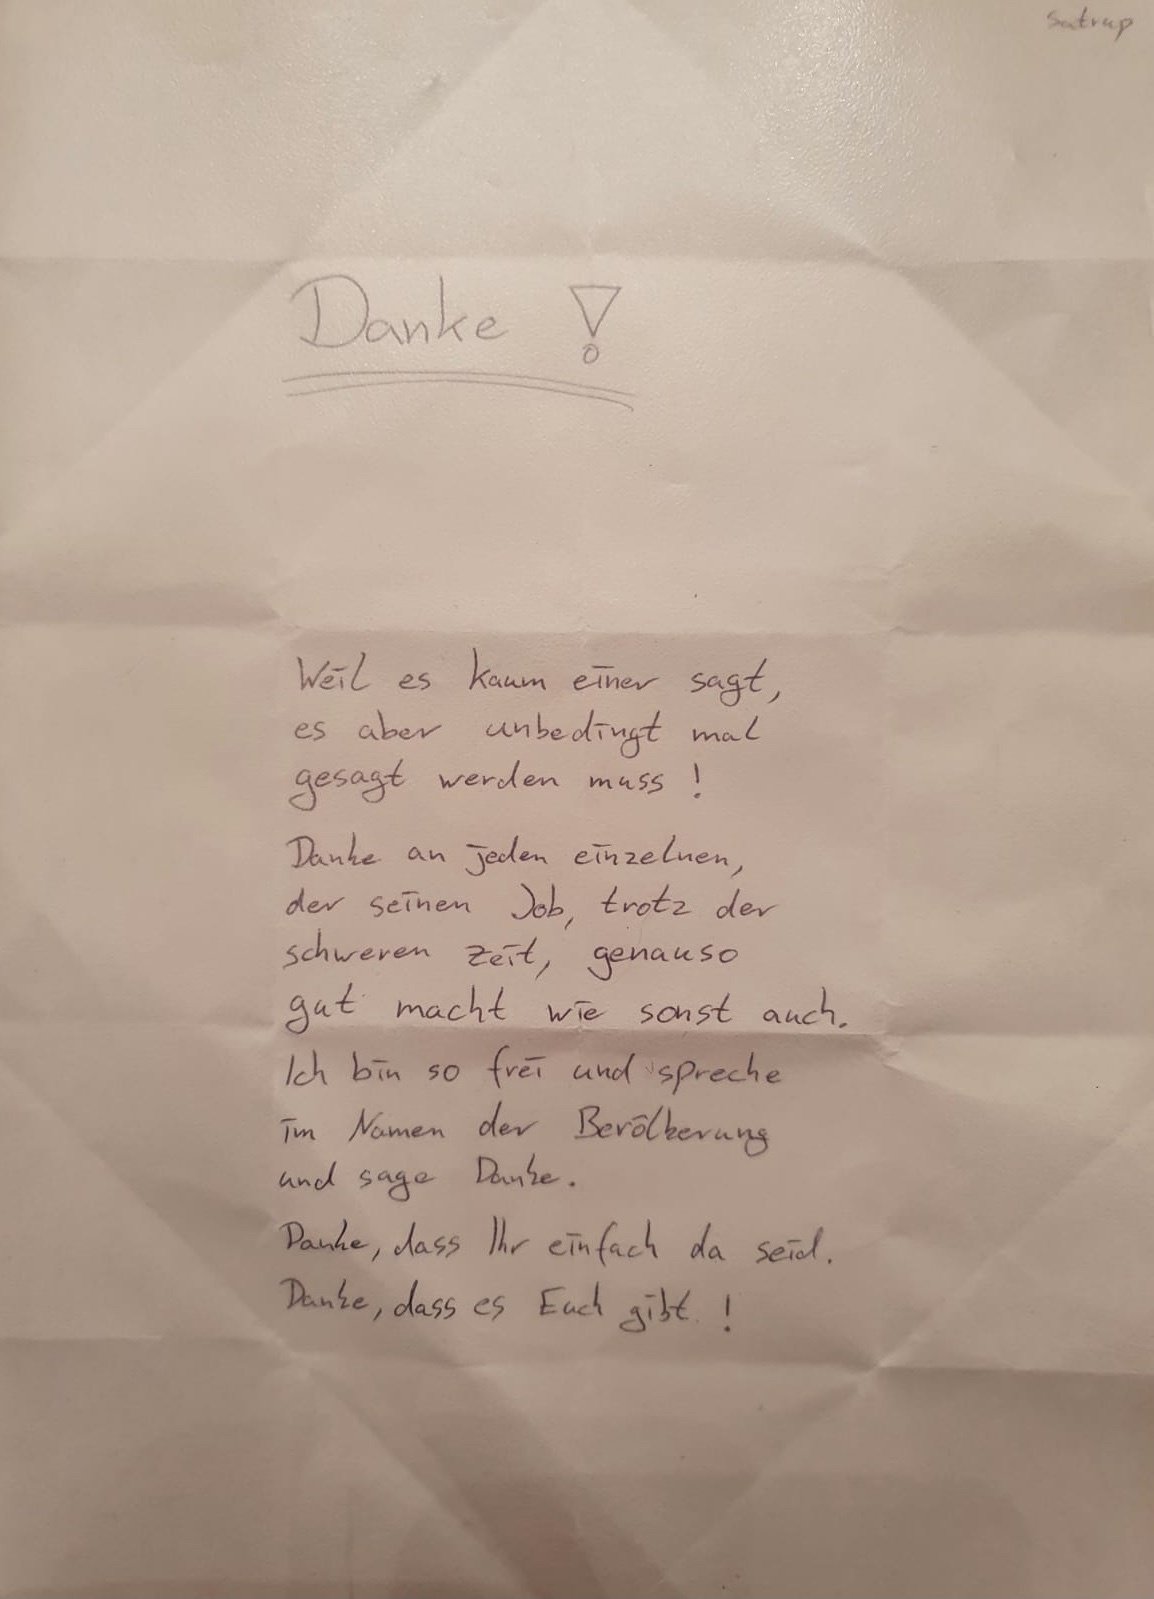 Satrup
Danke !
Weil es kaum einer sagt,
es aber unbedingt mal
gesagt werden muss !
Danke an jeden einzelnen,
der seinen Job, trotz der
schweren Zeit, genauso
gut macht wie sonst auch.
Ich bin so frei und spreche
im Namen der Bevölkerung
und sage Danke.
Danke, dass Ihr einfach da seid.
Danke, dass es Euch gibt !